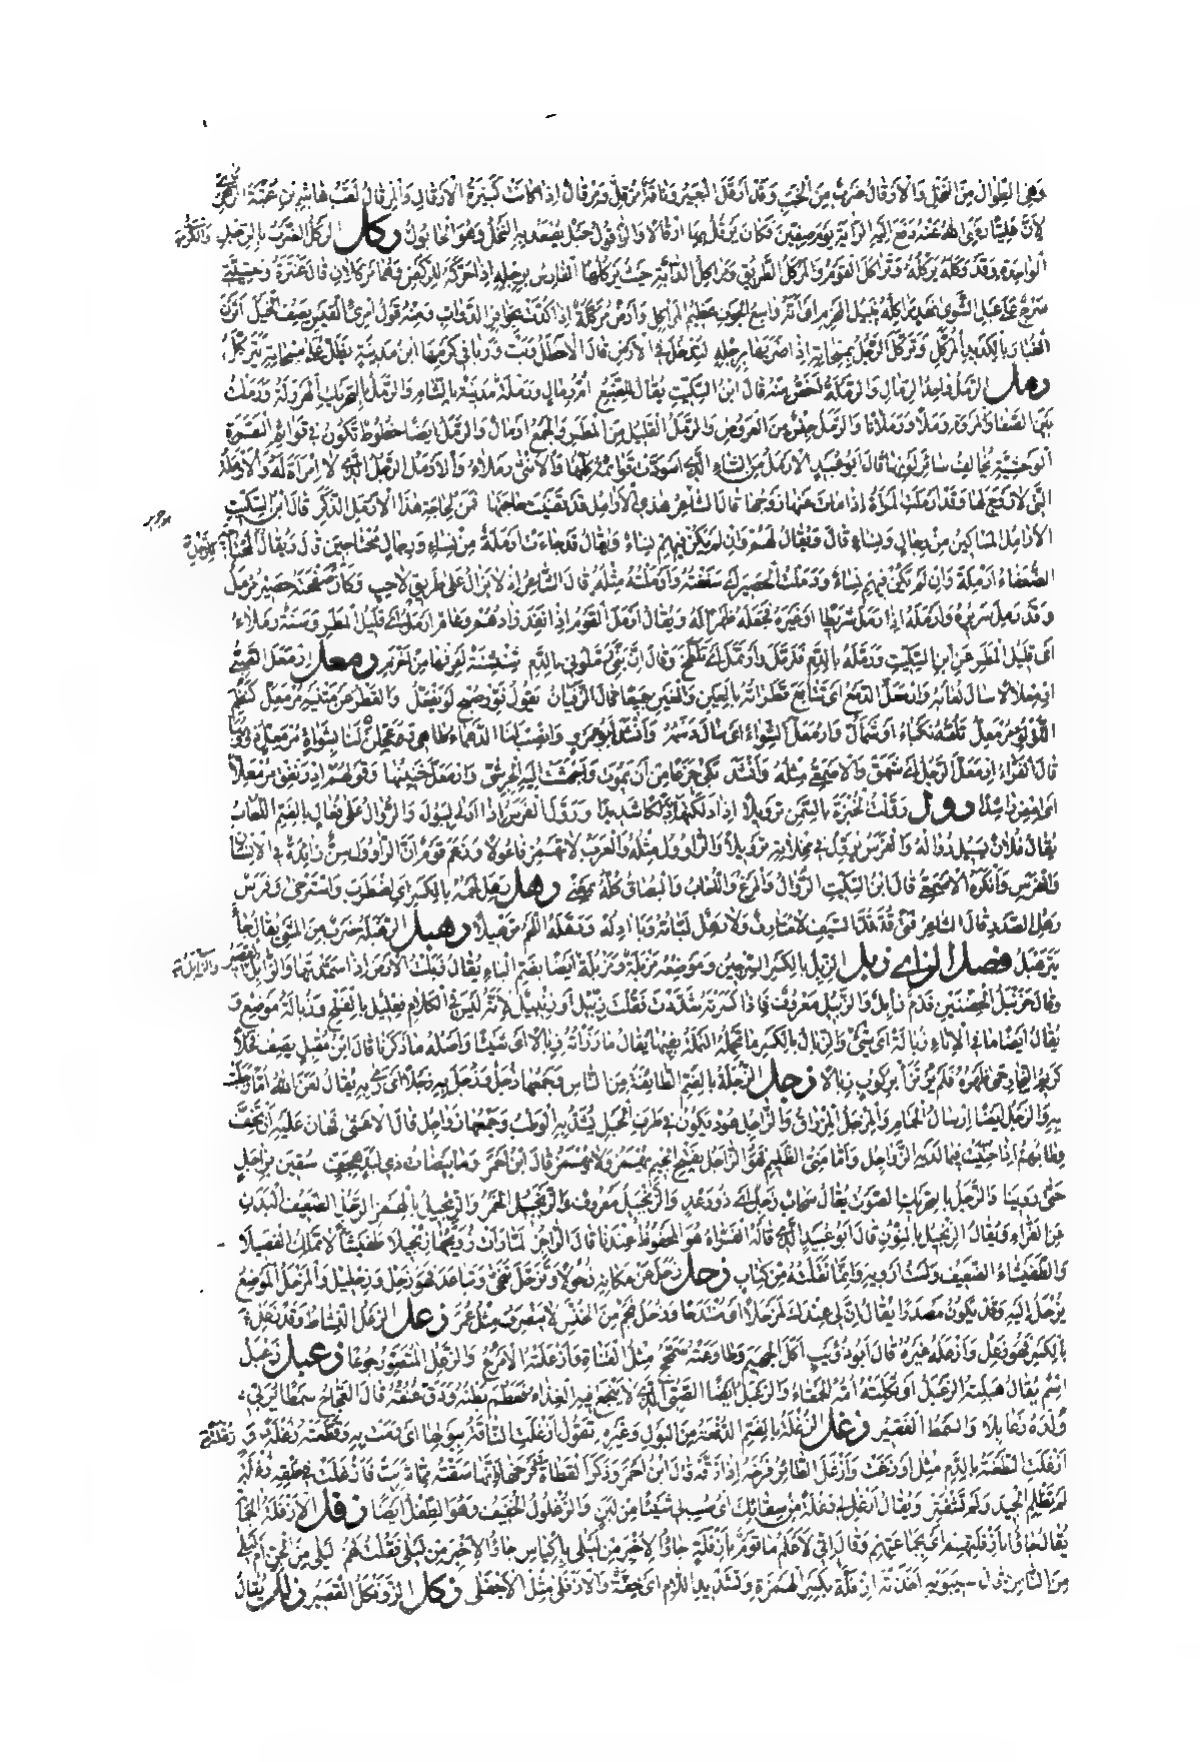 وهي الطوال من النخل والأرقال ضرب من الخبب وقد أرقل البعير وناقة مرقل ومرقال إذا كانت كثيرة الأرقال والمرقال لقب هاشم بن عتبة الزهري
لأن عليا رضي الله عنه دفع إليه الراية يوم صفين فكان يرقل بها ارقالا والراقول حبل يصعد به النخل وهو الحابول ركل الركل الضرب بالرجل
الواحدة وقد ركله يركله وتراكل القوم والمركل الطريق ومراكل الدابة حيث يركلها الفارس برجله إذا حركه للركض وهما مركلان قال عنترة وحشيتي
سرج على عبل الشوى نهد مراكله نبيل المحزم أي أنه واسع الجوف عظيم المراكل وأرض مركلة إذا كدت بحوافر الدواب ومنه قول امرئ القيس يصف الخيل أثرن
الغبار بالكديد المركل وتركل الرجل بمسحاته إذا ضربها برجله لتدخل في الأرض قال الأخطل ربت وربا في كرمها ابن مدينة يظل على مسحاته يتركل
رمل الرمل واحد الرمال والرملة أخص منه قال ابن السكيت يقال للضبع أم رمال ورملة مدينة بالشام والرمل بالتحريك الهرولة ورملت
بين الصفا والمروة رملا ورملانا والرمل جنس من العروض والرمل القليل من المطر والجمع أرمال والرمل أيضا خطوط تكون في قوائم البقرة
الوحشية يخالف سائر لونها قال أبو عبيد الأرمل من الشاء الذي اسودت قوائمه كلها والأنثى رملاء والأرمل الرجل الذي لا امرأة له والأرملة
التي لا زوج لها وقد أرملت المرأة إذا مات عنها زوجها قال الشاعر هذي الأرامل قد قضيت حاجتها فمن لحاجة هذا الأرمل الذكر قال ابن السكيت
الأرامل المساكين من رجال ونساء قال ويقال لهم وإن لم يكن فيهم نساء ويقال قد جاءت أرملة من نساء ورجال محتاجين قال ويقال
الضعفاء أرملة وإن لم يكن فيهم نساء ورملت الحصير أي سففته وأرملته مثله قال الشاعر إذ لا يزال على طريق لاحب وكأن صفحته حصير مرمل
وقد رمل سريره وأرمله إذا رمل شريطا أو غيره فجعله ظهرا له ويقال أرمل القوم إذا نفد زادهم وعام أرمل أي قليل المطر وسنة رملاء
أي قليل المطر عن ابن السكيت ورمله بالدم فترمل وارتمل أي تلطخ وقال إن بني رملوني بالدم شنشنة أعرفها من أخزم رمعل ارمعل الصبي
ارمعلالا سال لعابه وارمعل الدمع أي تتابع قطرانه بالعين والغين جميعا قال الزفيان يقول نور صبح لو يفعل والقطر عن متنيه مرمعل كنظم
اللؤلؤ مرمعل تلفه نكباء أو شمأل وارمعل الشواء أي سال دسمه وأنشد أبو عمرو وانصب لنا الدهماء طاهي وعجلن لنا بشواة مرمعل ذؤوبها
قال الفراء ارمعل الرجل أي شهق والأصمعي مثله وأنشد بكى جزعا من أن يموت وأجهشت إليه الجرشى وارمعل خنينها وقولهم ادرنفق مرمعلا
أي امض راشدا رول رولت الخبزة بالسمن ترويلا إذا دلكتها به دلكا شديدا ورول الفرس إذا أدلى ليبول والروال على فعال بالضم اللعاب
يقال فلان يسيل رواله والفرس يرول في مخلاته ترويلا والراوول مثله والعرب لا تهمز فاعولا وزعم قوم أن الراوول سن زائدة في الإنسان
والفرس وأنكره الأصمعي قال ابن السكيت الروال والمرغ واللعاب والبصاق كله بمعنى رهل رهل لحمه بالكسر أي اضطرب واسترخى وفرس
رهل الصدر قال الشاعر فتى قد قد السيف لا متآزف ولا رهل لباته وبآدله ورهله اللحم ترهيلا رهبل الرهبلة ضرب من المشي يقال جاء
يترهبل فصل الزاي زبل الزبل بالكسر السرجين وموضعه مزبلة ومزبلة أيضا بضم الباء يقال زبلت الأرض إذا سمدتها والزابل القصير
يقال أيضا ما في الإناء زبالة أي شيء والزبال بالكسر ما تحمله النملة بفيها يقال ما رزأته زبالا أي شيئا وأصله ما ذكرنا قال ابن مقبل يصف فحلا
كريم النجار حمى ظهره فلم يرتزأ بركوب زبالا زجل الزجلة بالضم الطائفة من الناس وجمعها زجل وزجل به زجلا أي رمى به يقال لعن الله أما زجلت
به والزجل أيضا إرسال الحمام والمزجل المزراق والزاجل عود يكون في طرف الحبل يشد به الوطب وجمعها زواجل قال الأعشى فهان عليه أن تجف
وطابكم إذا حنيت فيما لديه الزواجل وأما مني الظليم فهو الزاجل بفتح الجيم يهمز ولا يهمز قال ابن أحمر وما بيضات ذي لبد هجف سقين بزاجل
حتى روينا والزجل بالتحريك الصوت يقال سحاب زجل أي ذو رعد والزنجبيل معروف والزنجبيل الخمر والزئجيل بالهمز الرجل الضعيف البدن
عن الفراء ويقال الزنجيل بالنون قال أبو عبيد الذي قاله الفراء هو المحفوظ عندنا قال الراجز لما رأت زويجها زنجيلا طفيشأ لا تملك الفصيلا
والطفيشاء الضعيف ولست أرويه وإنما نقلته من كتاب زحل زحل عن مكانه زحولا وتزحل تنحى وتباعد فهو زحل وزحليل والمزحل الموضع
يزحل إليه وقد يكون مصدرا يقال إن لي عندك مزحلا أي منتدحا وزحل نجم من الخنس لا ينصرف مثل عمر زعل الزعل النشاط وقد زعل
بالكسر فهو زعل وأزعله غيره قال أبو ذؤيب أكل الجميم وطاوعته سمحج مثل القناة وأزعلته الأمرع والزعل المتضور جوعا زعبل زعبل
اسم يقال هبلته الزعبل أي ثكلته أمه الحمقاء والزعبل أيضا الصبي الذي لا ينجع فيه الغذاء فعظم بطنه ودق عنقه قال العجاج سمطا يربي
ولدة زعابلا والسمط الفقير زغل الزغلة بالضم الدفعة من البول وغيره تقول أزغلت الناقة ببولها أي رمت به وقطعته زغلة
أزغلت الطعنة بالدم مثل أوزغت وأزغل الطائر فرخه إذا زقه قال ابن أحمر وذكر القطاة وفرخها وإنها سقته مما شربت فأزغلت في حلقه زغلة
لم تظلم الجيد ولم تشفتر ويقال أزغلي لي زغلة من سقائك أي صبي لي شيئا من لبن والزغلول الخفيف وهو الطفل أيضا زفل الأزفلة الجماعة
يقال جاؤا بأزفلتهم أي بجماعتهم وقال إني لأعلم ما قوم بأزفلة جاؤا لأخبر من ليلى بأكياس جاؤا لأخبر من ليلى فقلت لهم ليلى من الجن أم ليلى
من الناس قال سيبويه أخذته إزفلة بكسر الهمزة وتشديد اللام أي خفة والأزفلى مثل الأجفلى زكل الزونكل القصير زلل يقال